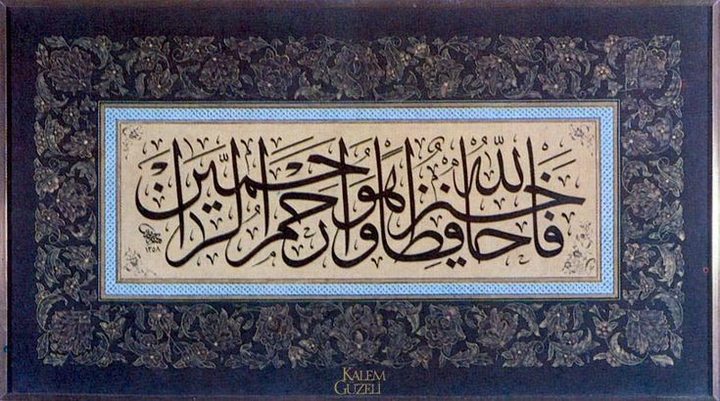 فالله خير حافظا وهو أرحم الراحمين
١٣٥٨
KALEM
GÜZELİ